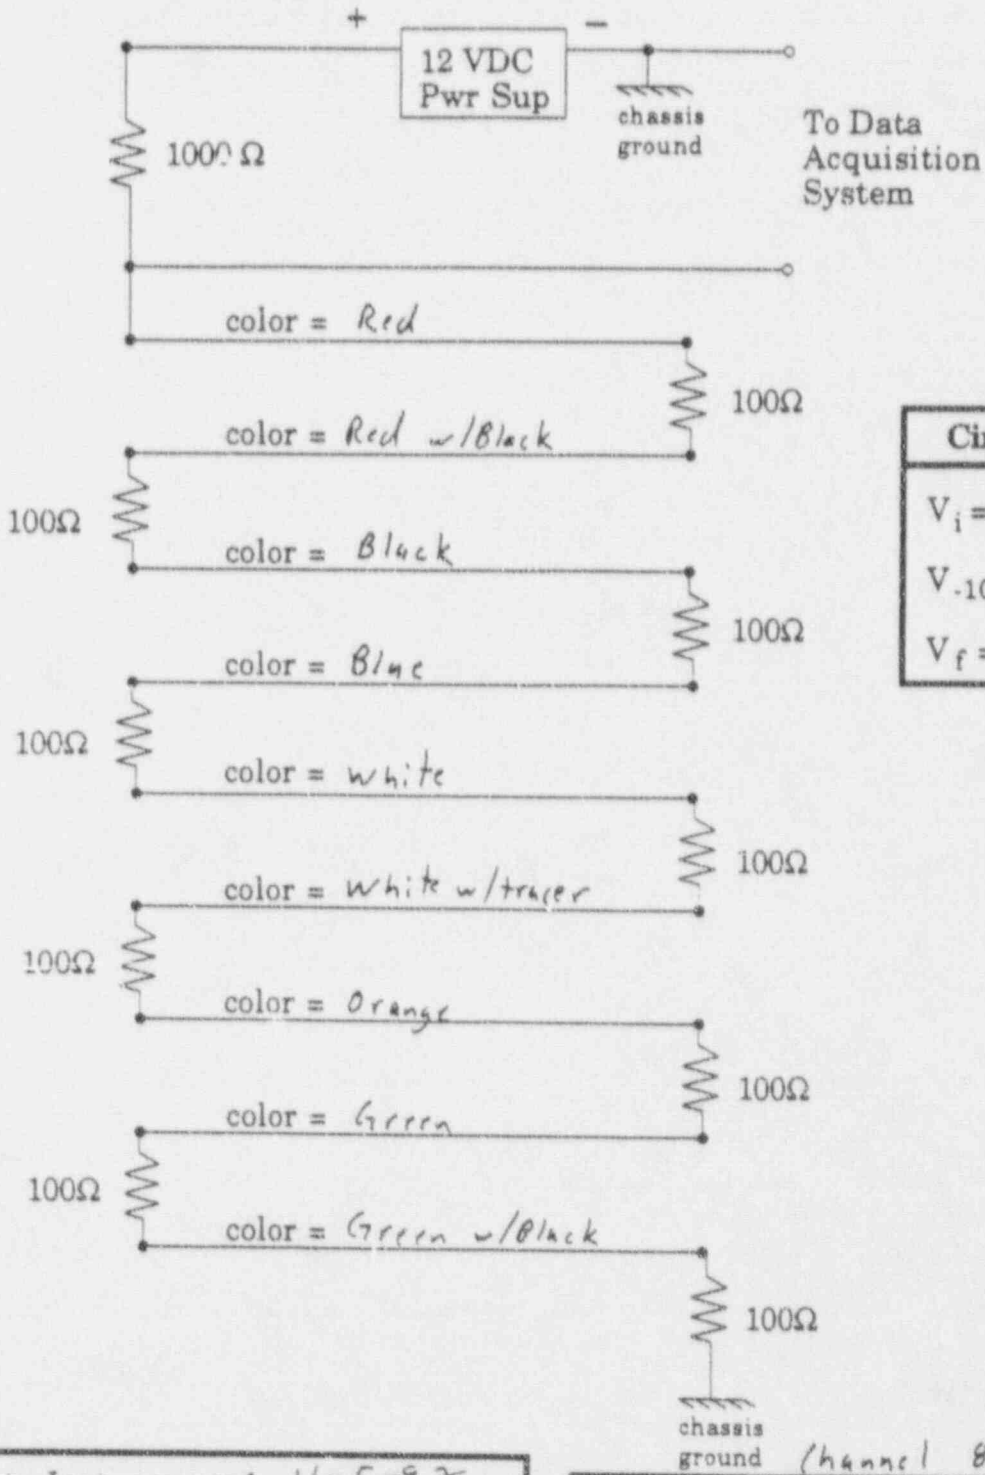 +
−
12 VDC
Pwr Sup
chassis
ground
To Data
Acquisition
System
1000 Ω
color = Red
100Ω
color = Red w/Black
100Ω
color = Black
100Ω
color = Blue
100Ω
color = White
100Ω
color = White w/tracer
100Ω
color = Orange
100Ω
color = Green
100Ω
color = Green w/Black
100Ω
chassis
ground
Channel 8
V i =
V -10
V f =